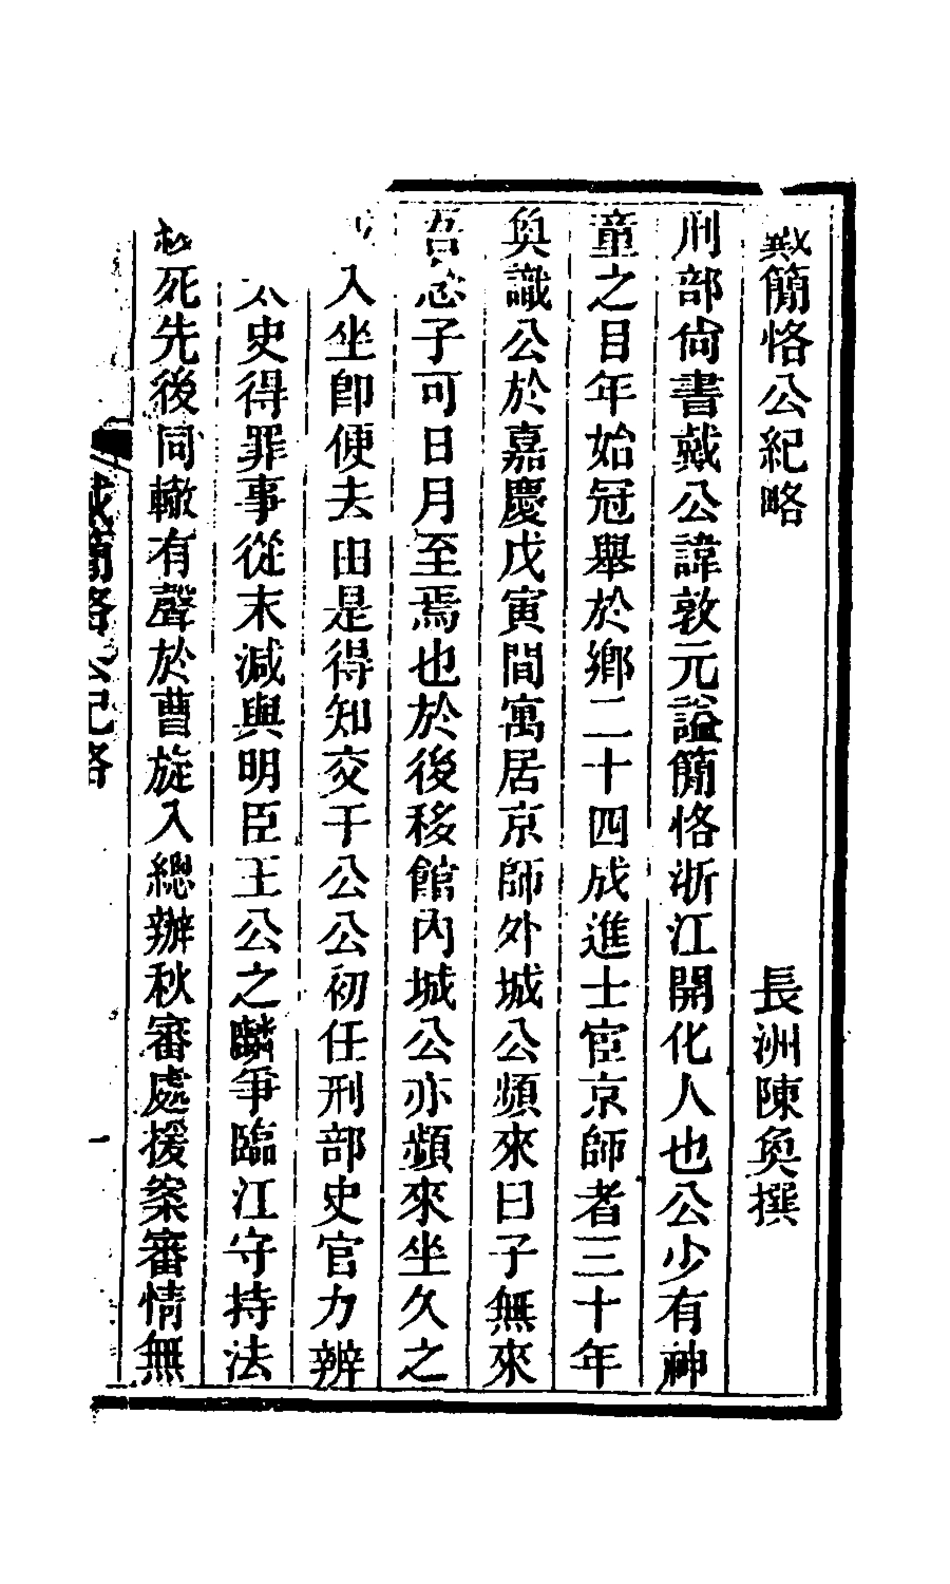 戴簡恪公紀略　長洲陳奐撰
刑部尚書戴公諱敦元謚簡恪浙江開化人也公少有神
童之目年始冠舉於鄉二十四成進士宦京師者三十年
奐識公於嘉慶戊寅間寓居京師外城公頻來曰子無來
吾必子可日月至焉也於後移館內城公亦頻來坐久之
入坐卽便去由是得知交于公公初任刑部史官力辨
史得罪事從末減與明臣王公之麟爭臨江守持法
死先後同轍有聲於曹旋入總辦秋審處援案審情無
戴簡恪公紀略
一